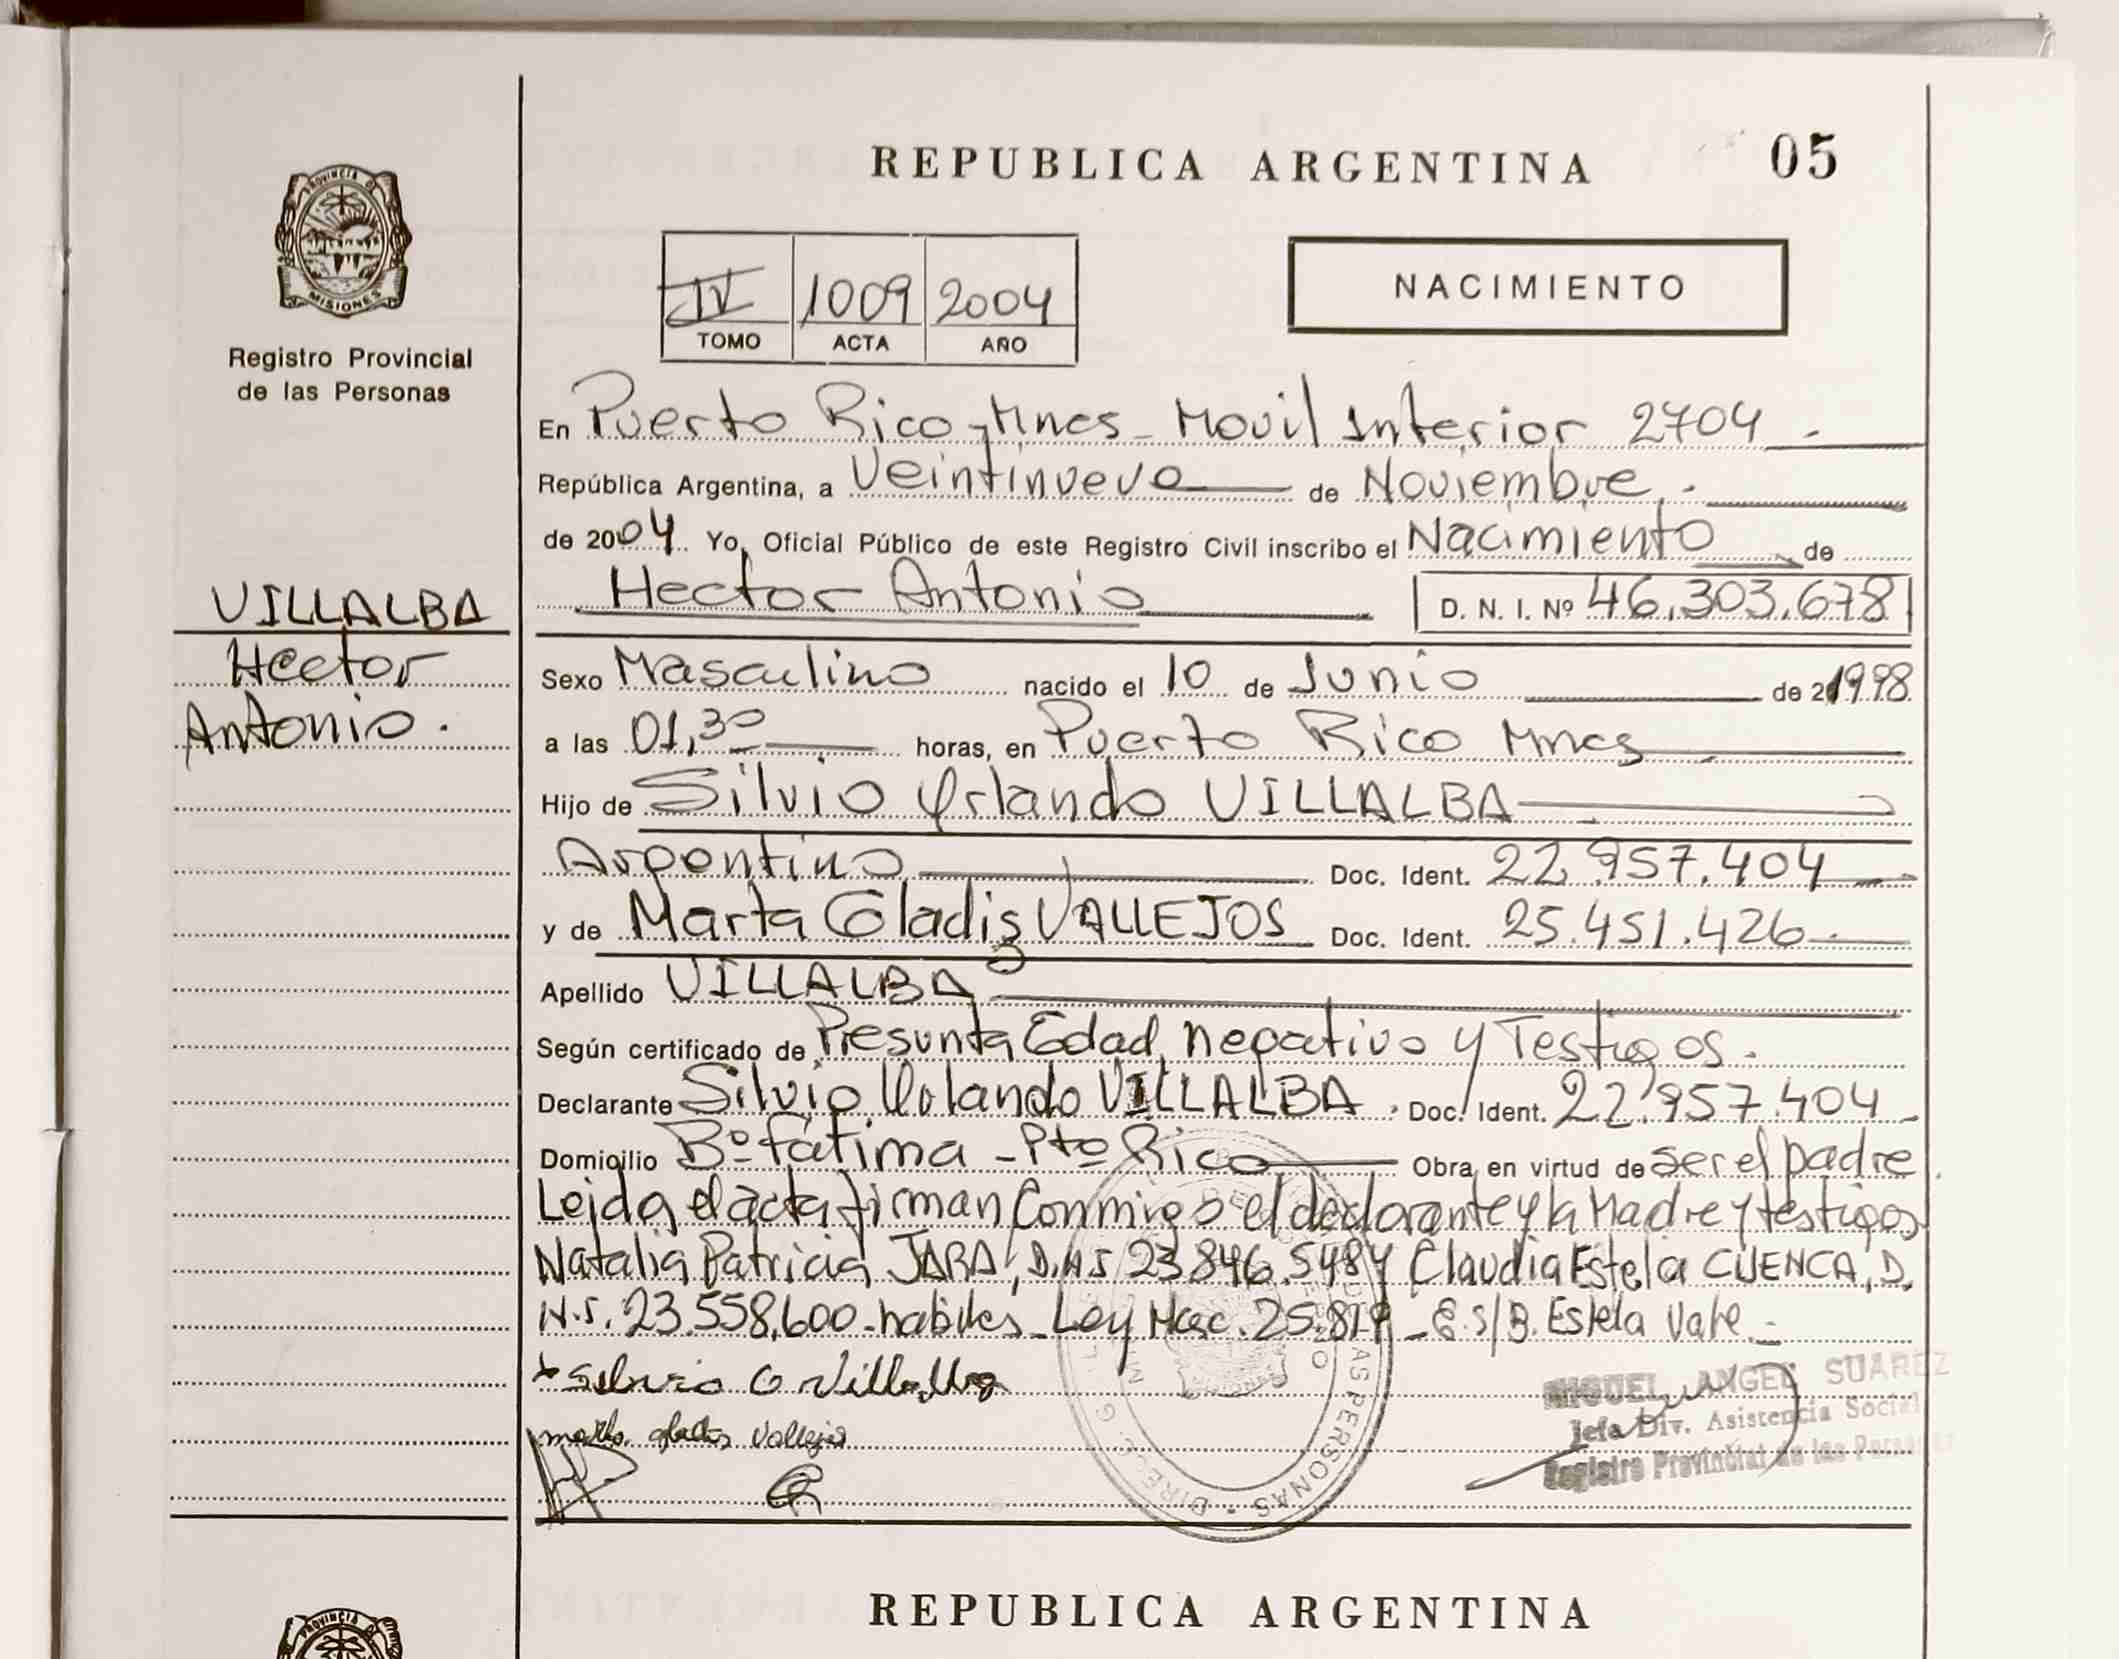 REPUBLICA ARGENTINA
05
PROVINCIA DE
MISIONES
Registro Provincial
de las Personas
IV 1009 2004
TOMO ACTA AÑO
NACIMIENTO
En Puerto Rico - Mnes - Movil Interior 2704 -
República Argentina, a Veintinueve de Noviembre. -
de 2004 Yo, Oficial Público de este Registro Civil inscribo el Nacimiento de
Hector Antonio D. N. I. Nº 46.303.678
VILLALBA
Hector
Antonio.
Sexo Masculino nacido el 10 de Junio de 1998
a las 01,30 horas, en Puerto Rico Mnes
Hijo de Silvio Orlando VILLALBA
Argentino Doc. Ident. 22.957.404
y de Marta Gladis VALLEJOS Doc. Ident. 25.451.426
Apellido VILLALBA
Según certificado de Presunta Edad, negativo y Testigos.
Declarante Silvio Orlando VILLALBA. Doc. Ident. 22.957.404
Domicilio Bº Fátima - Pto Rico Obra en virtud de ser el padre.
Leida el acta firman Conmigo el declarante y la Madre y testigos
Natalia Patricia JARA, D.N.I 23.846.548 y Claudia Estela CUENCA, D.
N.I. 23.558.600 - habiles - Ley Nac. 25.819 - E.S/B. Estela Vale. -
Silvio O Villalba
marta gladis Vallejos
MIGUEL ANGEL SUAREZ
Jefe Div. Asistencia Social
Registro Provincial de las Personas
REPUBLICA ARGENTINA
PROVINCIA